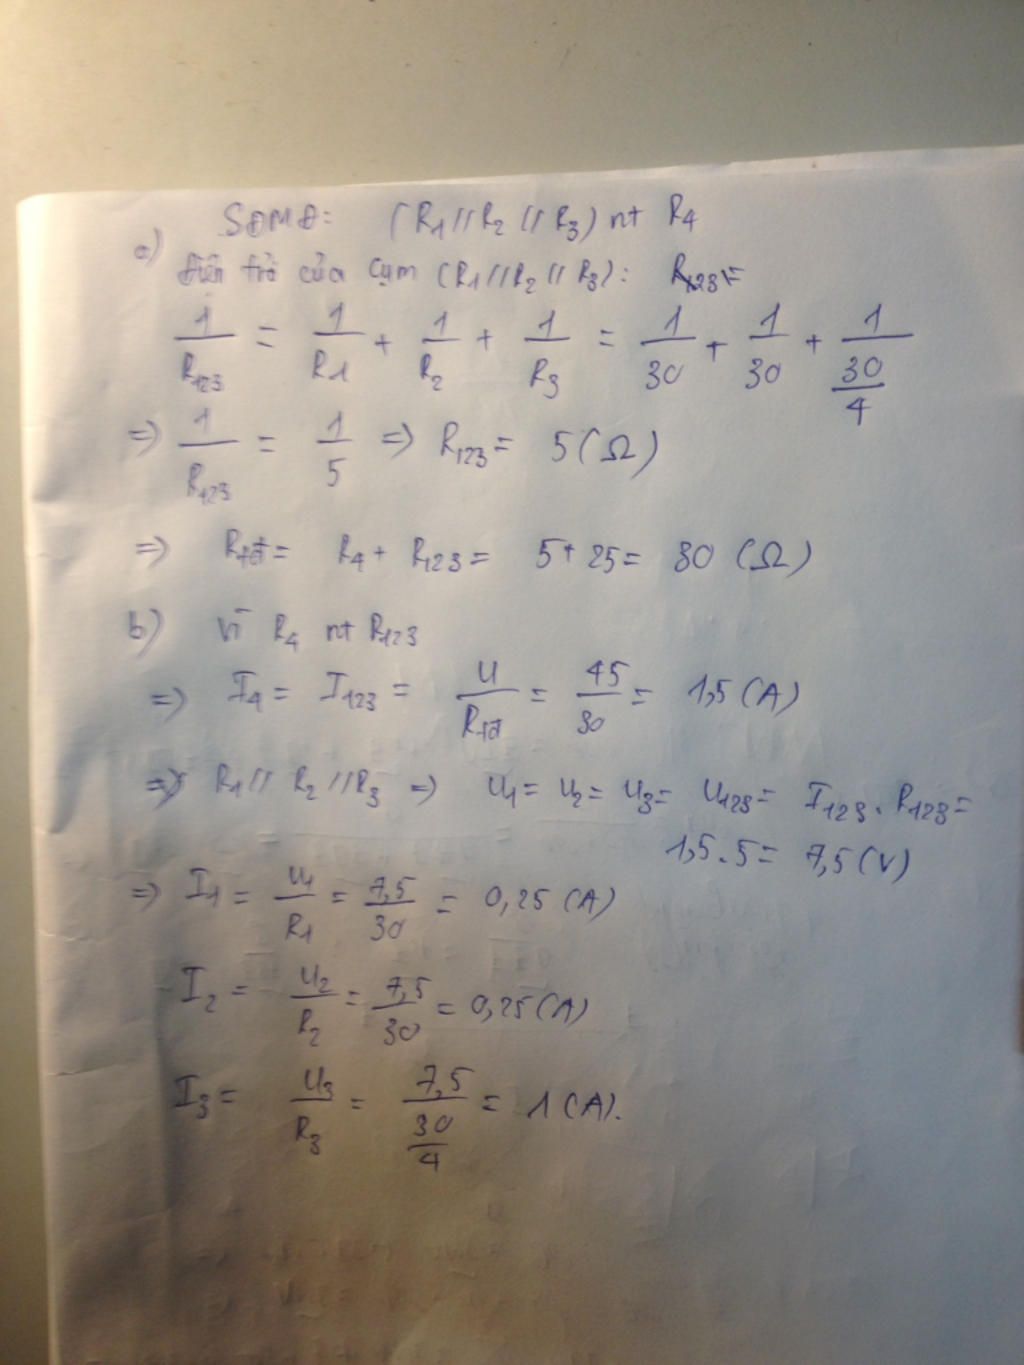 SĐMĐ: (R1 // R2 // R3) nt R4
a) Điện trở của cụm (R1 // R2 // R3): R123 =
1/R123 = 1/R1 + 1/R2 + 1/R3 = 1/30 + 1/30 + 1/(30/4)
=> 1/R123 = 1/5 => R123 = 5 (Ω)
=> Rtđ = R4 + R123 = 5 + 25 = 30 (Ω)
b) Vì R4 nt R123
=> I4 = I123 = U/Rtđ = 45/30 = 1,5 (A)
=> R1 // R2 // R3 => U1 = U2 = U3 = U123 = I123 . R123 =
1,5 . 5 = 7,5 (V)
=> I1 = U1/R1 = 7,5/30 = 0,25 (A)
I2 = U2/R2 = 7,5/30 = 0,25 (A)
I3 = U3/R3 = 7,5/(30/4) = 1 (A).